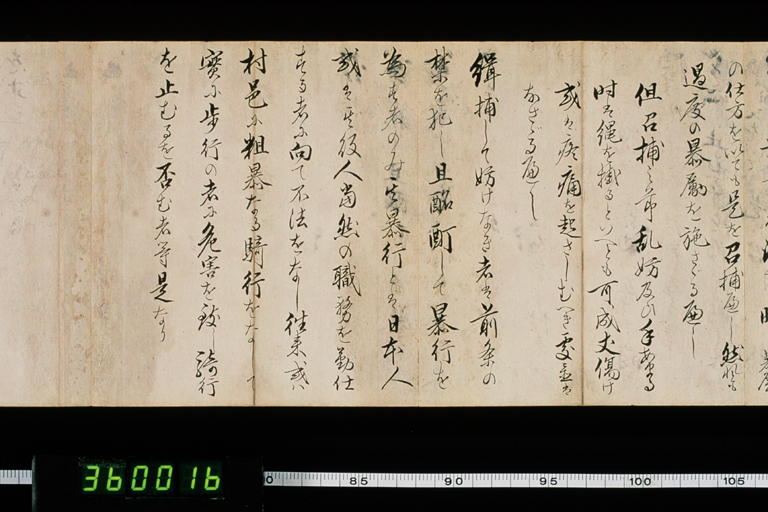 の仕方を以ても是を召捕へし然れとも
過度の暴励を施さゝる
但召捕之節乱妨及ひ手あらる
時は縄を掛るといへとも可成丈傷け
或は疼痛を起さしむへき処置は
なさゝるへし
緝捕して妨けなき者は前条の
禁を犯し且酩酊して暴行を
為す者のみ其暴行とは日本人
或は其役人当然の職務を勤仕
する者に向て不法をなし往来或は
村邑に粗暴なる騎行をなして
実に歩行の者に危害を致し騎行
を止むるを否む者等是なり
360016
85
90
95
100
105